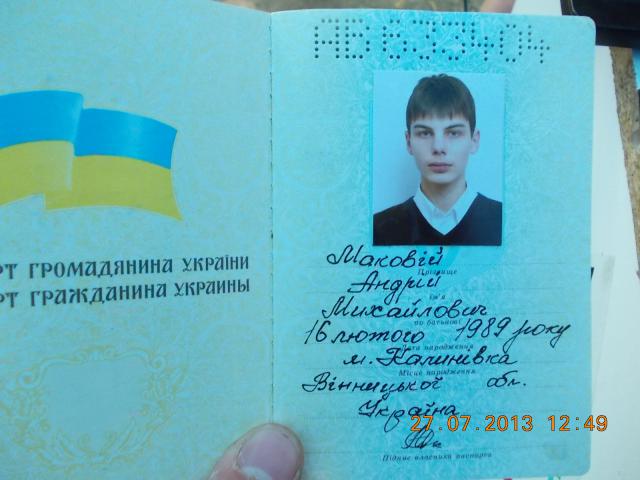 РТ ГРОМАДЯНИНА УКРАЇНИ
РТ ГРАЖДАНИНА УКРАИНЫ
Маковій
Прізвище
Андрій
Ім'я
Михайлович
по батькові
16 лютого 1989 року
Дата народження
м. Калинівка
Місце народження
Вінницької обл.
Україна
27.07.2013 12:49
Підпис власника паспорта